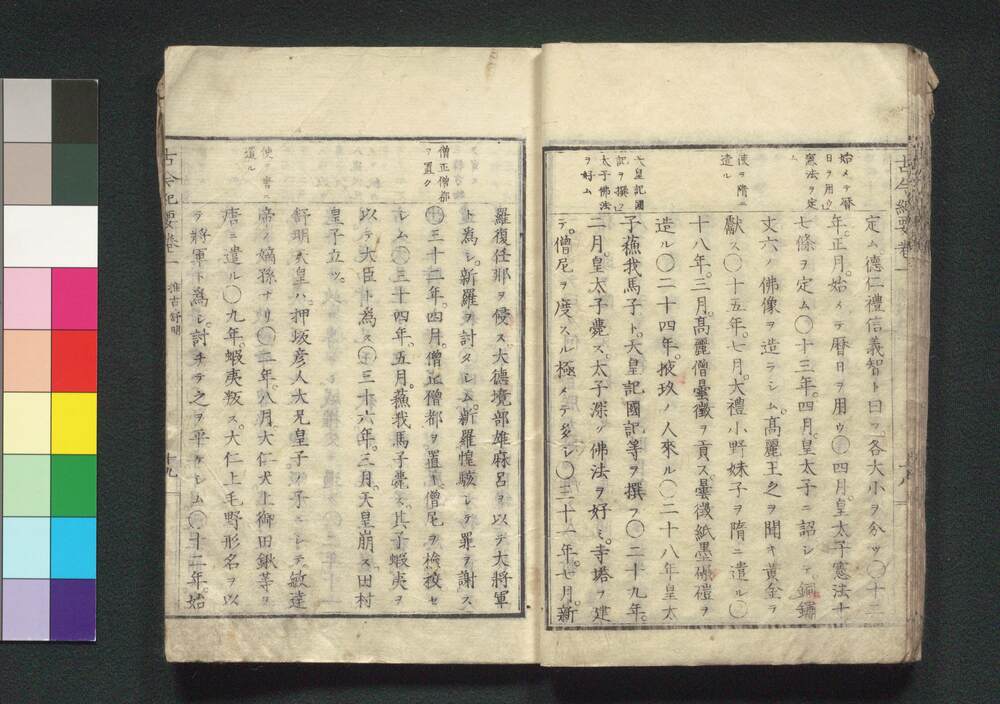 古今紀要卷一
十八
始メテ暦
日ヲ用ウ
憲法ヲ定
ム
使ヲ隋ニ
遣ル
天皇記國
記ヲ撰ブ
太子佛法
ヲ好ム
定ム德仁禮信義智ト曰フ各大小ヲ分ツ〇十二
年。正月。始メテ暦日ヲ用ウ〇四月。皇太子憲法十
七條ヲ定ム〇十三年。四月。皇太子ニ詔シテ。銅鏽
丈六ノ佛像ヲ造ラシム。高麗王之ヲ聞キ黃金ヲ
獻ス〇十五年。七月。大禮小野妹子ヲ隋ニ遣ル〇
十八年。三月。高麗僧曇徵ヲ貢ス。曇徵紙墨碾磑ヲ
造ル〇二十四年。掖玖ノ人來ル〇二十八年皇太
子蘓我馬子ト。天皇記國記等ヲ撰フ〇二十九年。
二月。皇太子薨ス。太子深ク佛法ヲ好ミ。寺塔ヲ建
テ。僧尼ヲ度スル極メテ多シ〇三十一年。七月。新
僧正僧都
ヲ置ク
使ヲ唐ニ
遣ル
羅復任那ヲ侵ス大德境部雄麻呂ヲ以テ大將軍
ト爲シ。新羅ヲ討タシム。新羅惶駭シテ罪ヲ謝ス
〇三十二年。四月。僧正僧都ヲ置キ僧尼ヲ檢校セ
シム〇三十四年。五月。蘓我馬子薨ス。其子蝦夷ヲ
以テ大臣ト爲ス〇三十六年。三月。天皇崩ス田村
皇子立ツ。
舒明天皇ハ。押坂彦人大兄皇子ノ子ニシテ敏達
帝ノ嫡孫ナリ〇二年。八月。大仁犬上御田鍬等ヲ
唐ニ遣ル〇九年。蝦夷叛ス。大仁上毛野形名ヲ以
テ將軍ト爲シ。討チテ之ヲ平ケシム〇十二年。始
古今紀要卷一
推古舒明
十九